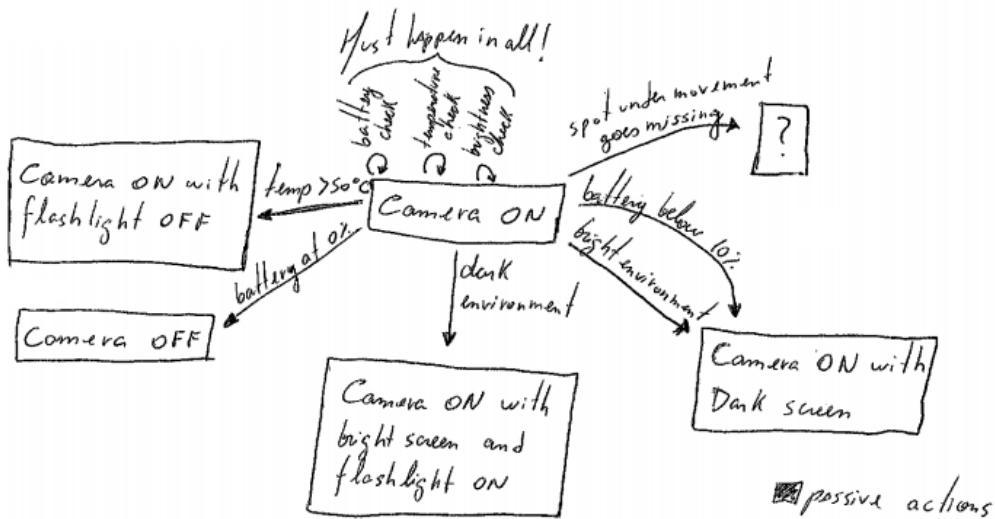 Must happen in all!
battery
check
temperature
check
brightness
check
spot under movement
goes missing
?
Camera ON with
flashlight OFF
temp >50°C
Camera ON
battery below 10%
bright environment
battery at 0%
dark
environment
Camera OFF
Camera ON with
Dark screen
Camera ON with
bright screen and
flashlight ON
passive actions